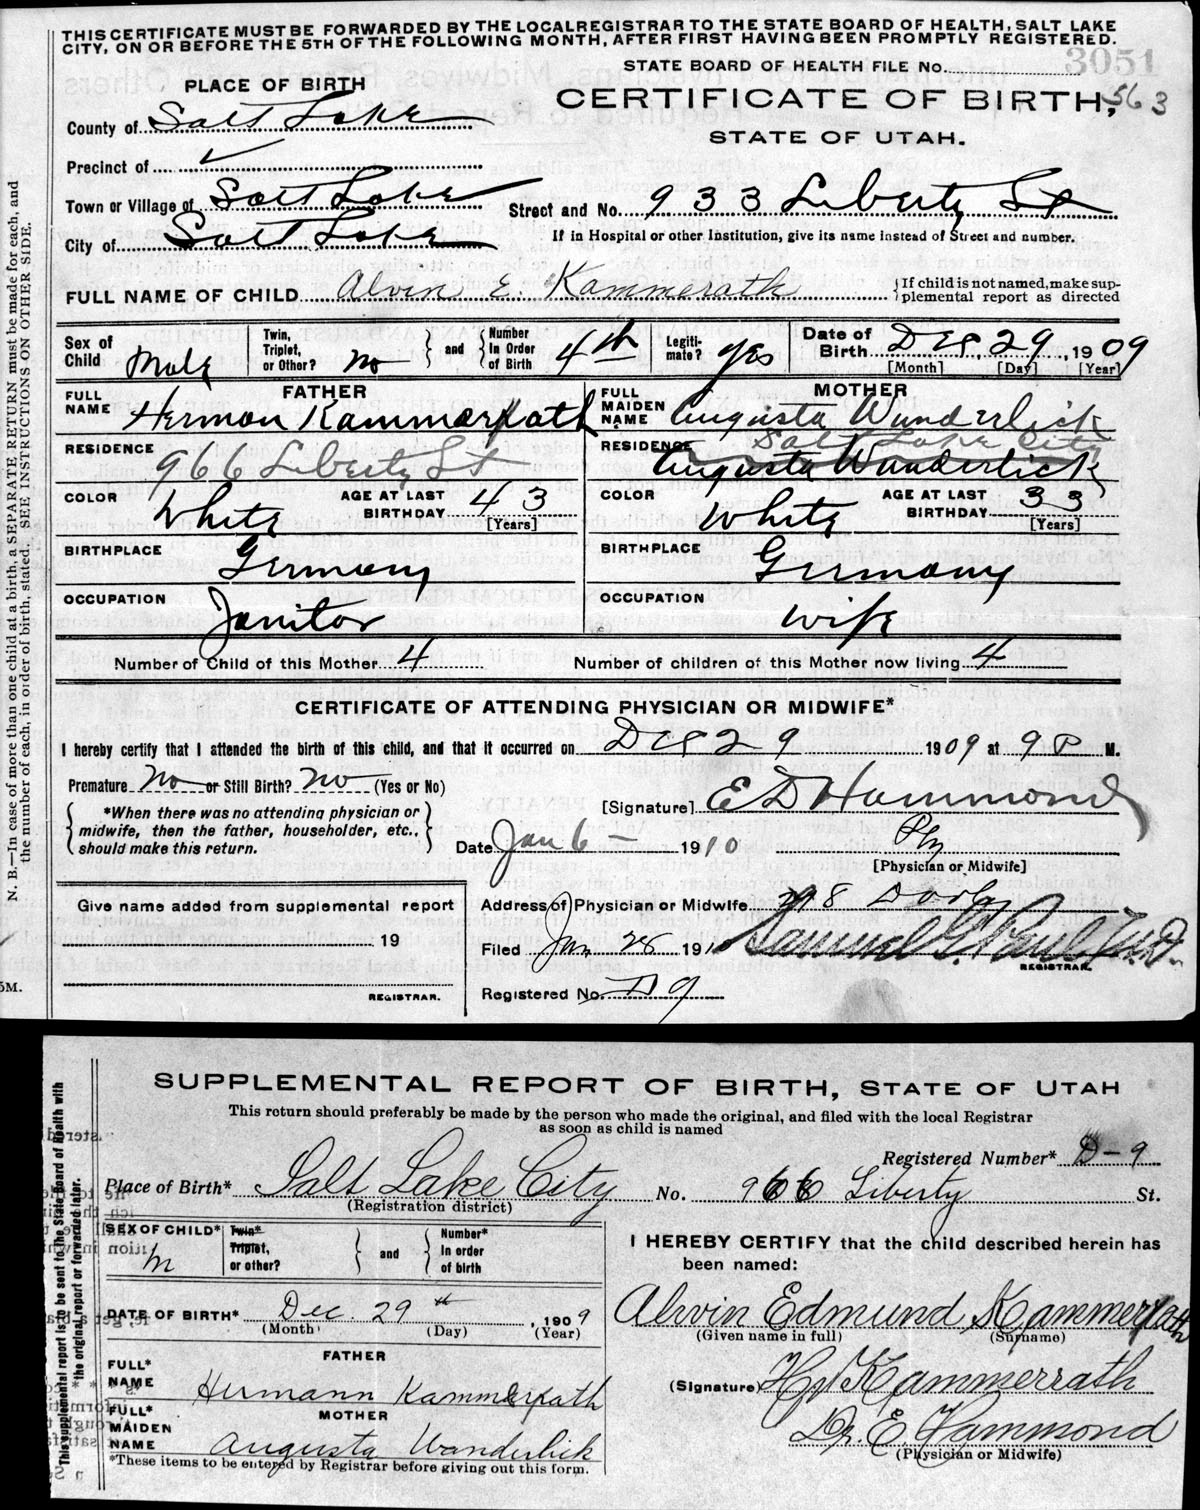 THIS CERTIFICATE MUST BE FORWARDED BY THE LOCAL REGISTRAR TO THE STATE BOARD OF HEALTH, SALT LAKE
CITY, ON OR BEFORE THE 5TH OF THE FOLLOWING MONTH, AFTER FIRST HAVING BEEN PROMPTLY REGISTERED.
STATE BOARD OF HEALTH FILE No. 3051
PLACE OF BIRTH
CERTIFICATE OF BIRTH, 563
County of Salt Lake
STATE OF UTAH.
Precinct of ✓
Town or Village of Salt Lake
Street and No. 933 Liberty St
City of Salt Lake
If in Hospital or other Institution, give its name instead of Street and number.
FULL NAME OF CHILD Alvin E Kammerath
If child is not named, make sup-
plemental report as directed
Sex of Child Male
Twin, Triplet, or Other? No
and
Number In Order of Birth 4th
Legiti-mate? yes
Date of Birth Dec, 29, 1909
[Month] [Day] [Year]
FATHER
FULL NAME Herman Kammerrath
MOTHER
FULL MAIDEN NAME Augusta Wunderlick
RESIDENCE 966 Liberty St
RESIDENCE Salt Lake City
Augusta Wunderlick
COLOR White
AGE AT LAST BIRTHDAY 43
[Years]
COLOR White
AGE AT LAST BIRTHDAY 33
[Years]
BIRTHPLACE Germany
BIRTHPLACE Germany
OCCUPATION Janitor
OCCUPATION wife
Number of Child of this Mother 4
Number of children of this Mother now living 4
CERTIFICATE OF ATTENDING PHYSICIAN OR MIDWIFE*
I hereby certify that I attended the birth of this child, and that it occurred on Dec 29 1909 at 9 P M.
Premature No or Still Birth? No (Yes or No)
*When there was no attending physician or
midwife, then the father, householder, etc.,
should make this return.
[Signature] E D Hammond
Date Jan 6 - 1910
Phy
[Physician or Midwife]
Give name added from supplemental report
19
REGISTRAR.
Address of Physician or Midwife 8 Dooly
Filed Jan 28 1910 Samuel G. Paul M.D.
REGISTRAR.
Registered No. D 9
N. B.—In case of more than one child at a birth, a SEPARATE RETURN must be made for each, and
the number of each, in order of birth, stated. SEE INSTRUCTIONS ON OTHER SIDE.
5M.
SUPPLEMENTAL REPORT OF BIRTH, STATE OF UTAH
This return should preferably be made by the person who made the original, and filed with the local Registrar
as soon as child is named
Registered Number* D-9
Place of Birth* Salt Lake City No. 966 Liberty St.
(Registration district)
SEX OF CHILD* M
Twin* Triplet, or other?
and
Number* In order of birth
I HEREBY CERTIFY that the child described herein has
been named:
DATE OF BIRTH* Dec. 29th, 1909
(Month) (Day) (Year)
Alvin Edmund Kammerrath
(Given name in full) (Surname)
FATHER
FULL* NAME Hermann Kammerrath
(Signature) H Kammerrath
MOTHER
FULL* MAIDEN NAME Augusta Wanderlick
Dr. E. Hammond
(Physician or Midwife)
*These items to be entered by Registrar before giving out this form.
This supplemental report is to be sent to the State Board of Health with
the original report or forwarded later.